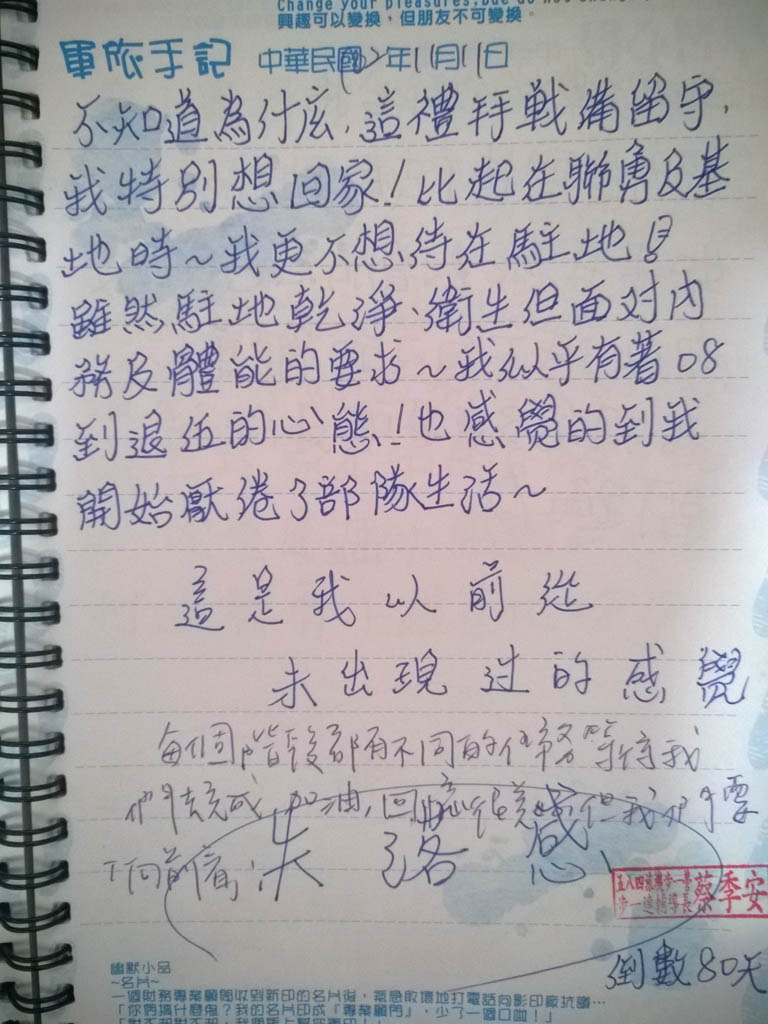 Change your pleasures, but do not change
興趣可以變換，但朋友不可變換。
軍旅手記 中華民國102年11月11日
不知道為什庅，這禮拜戰備留守，
我特別想回家！比起在聯勇及基
地時～我更不想待在駐地！
雖然駐地乾淨、衛生但面对內
務及體能的要求～我似乎有著08
到退伍的心態！也感覺的到我
開始厭倦了部隊生活～
這是我以前從
未出現过的感覺
每個階段都有不同的任務等待我
們去完成，加油，回憶很美 但我們要
向前看；
失落感
五八四旅機步一營
步一連輔導長 蔡季安
倒數80天
幽默小品
~名片~
一個財務專業顧問收到新印的名片後，氣急敗壞地打電話向影印廠抗議…
「你們搞什麼鬼？我的名片印成『專業顧門』，少了一個口啦！」